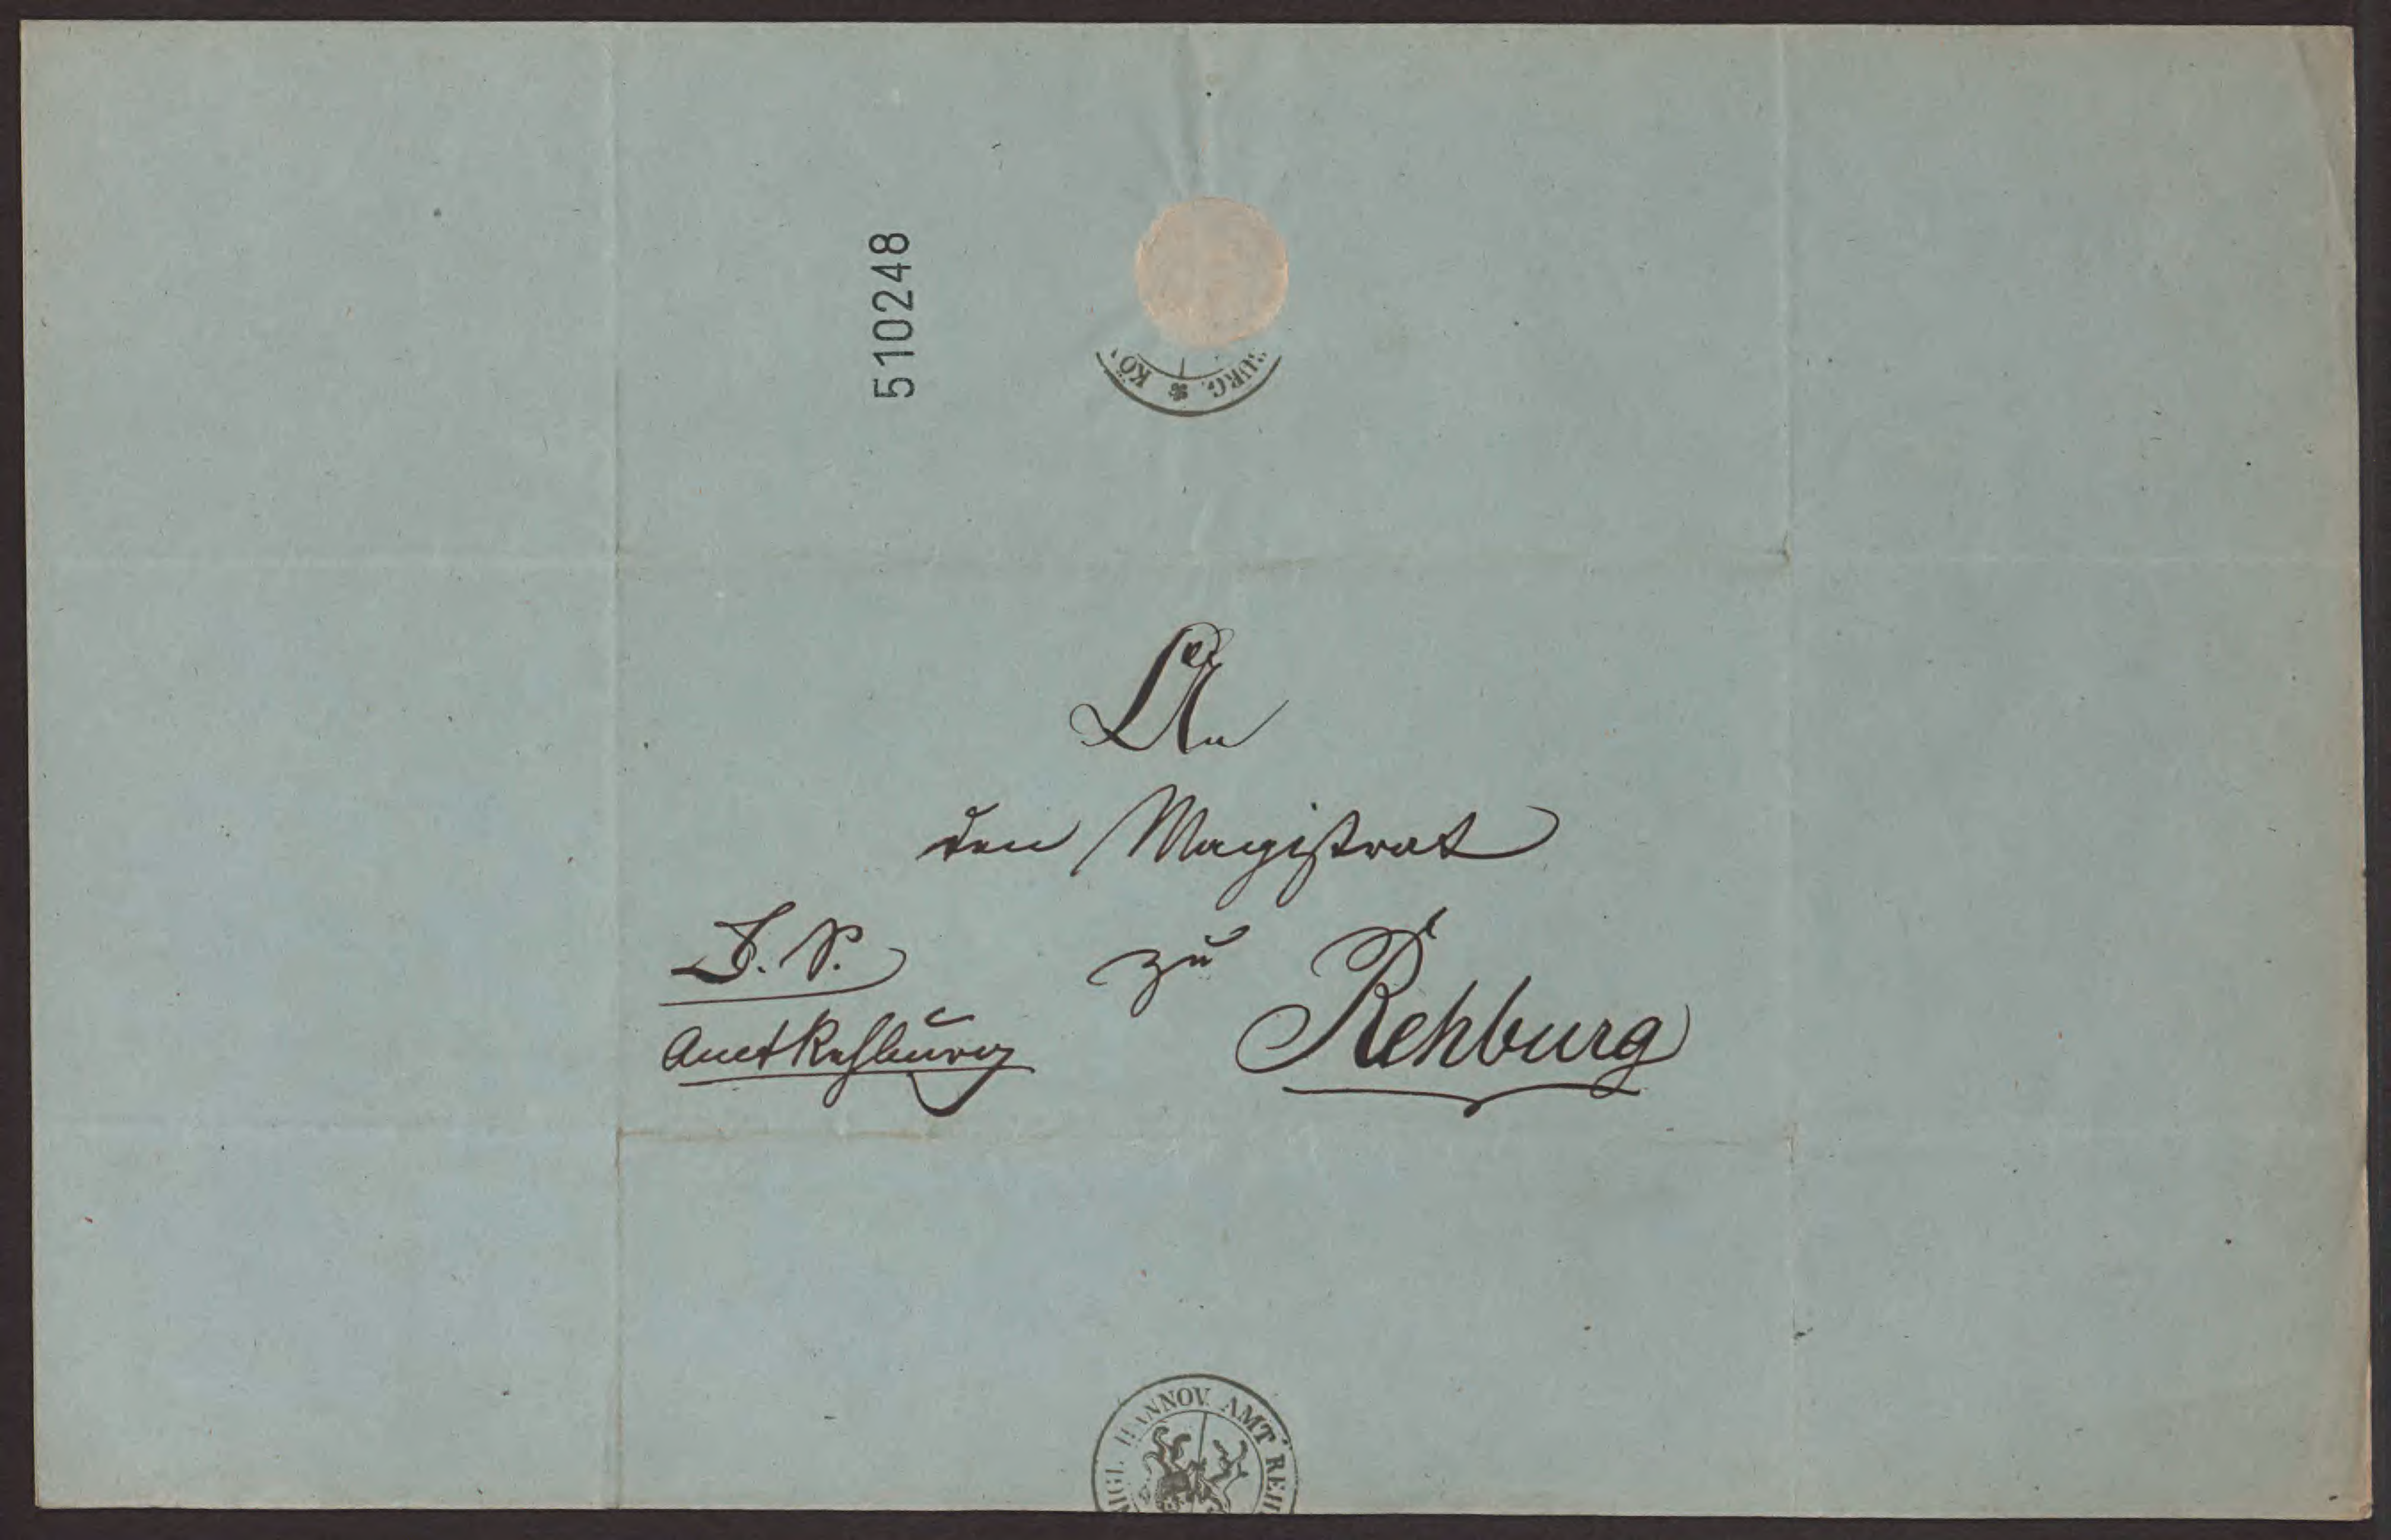 510248
KÖ
BURG.
An
den Magistrat
zu Rehburg
D. S.
Amt Rehburg
NIGL. HANNOV. AMT REH